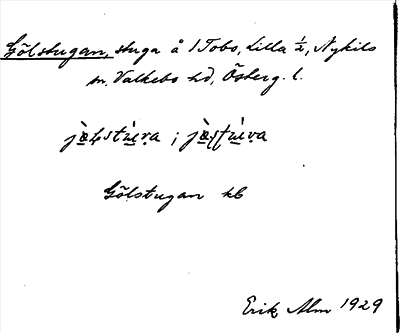 Gölstugan, stuga å 1 Tobo, Lilla ½, Nykils
sn. Valkebo hd, Österg. l.
Gölstugan kb
Erik Alm 1929